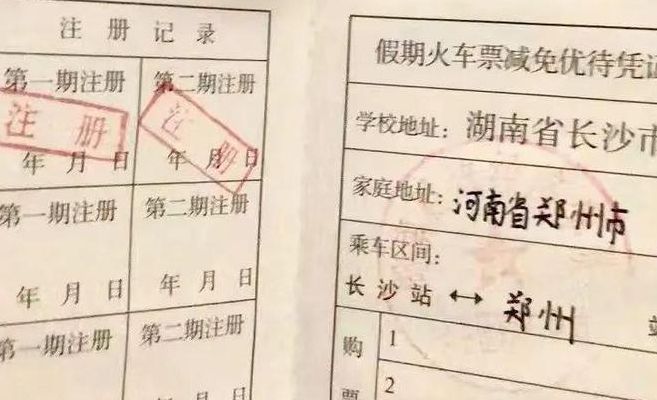 注册记录
第一期注册 第二期注册
注册 注册
年 月 日 年 月 日
第一期注册 第二期注册
年 月 日 年 月 日
第一期注册 第二期注册
年 月 日
假期火车票减免优待凭证
学校地址：湖南省长沙市
家庭地址：河南省郑州市
乘车区间：
长沙站 ↔ 郑州 站
购票
1
2